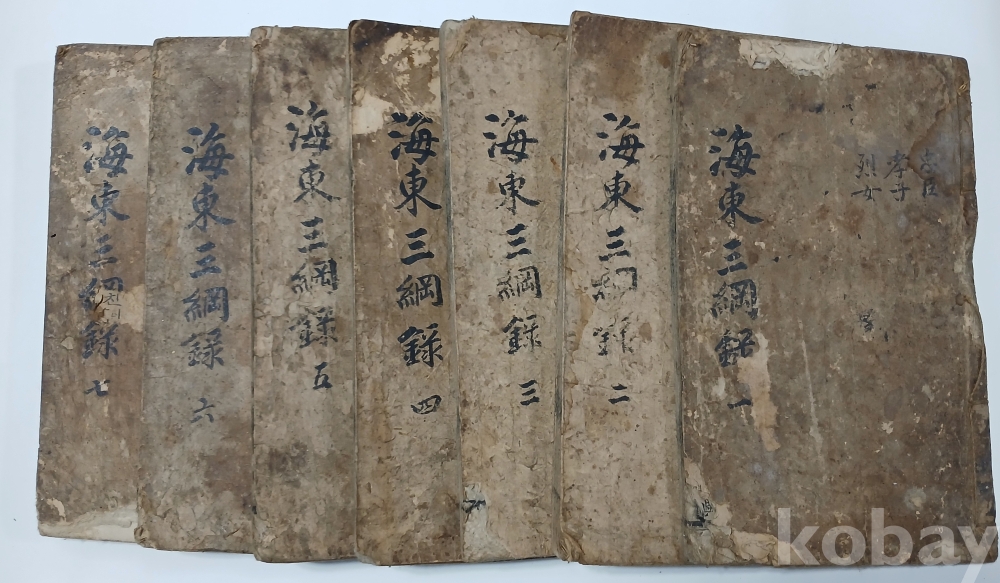 忠臣
孝子
烈女
海東三綱錄 一
海東三綱錄 二
海東三綱錄 三
海東三綱錄 四
海東三綱錄 五
海東三綱錄 六
海東三綱錄 七
kobay